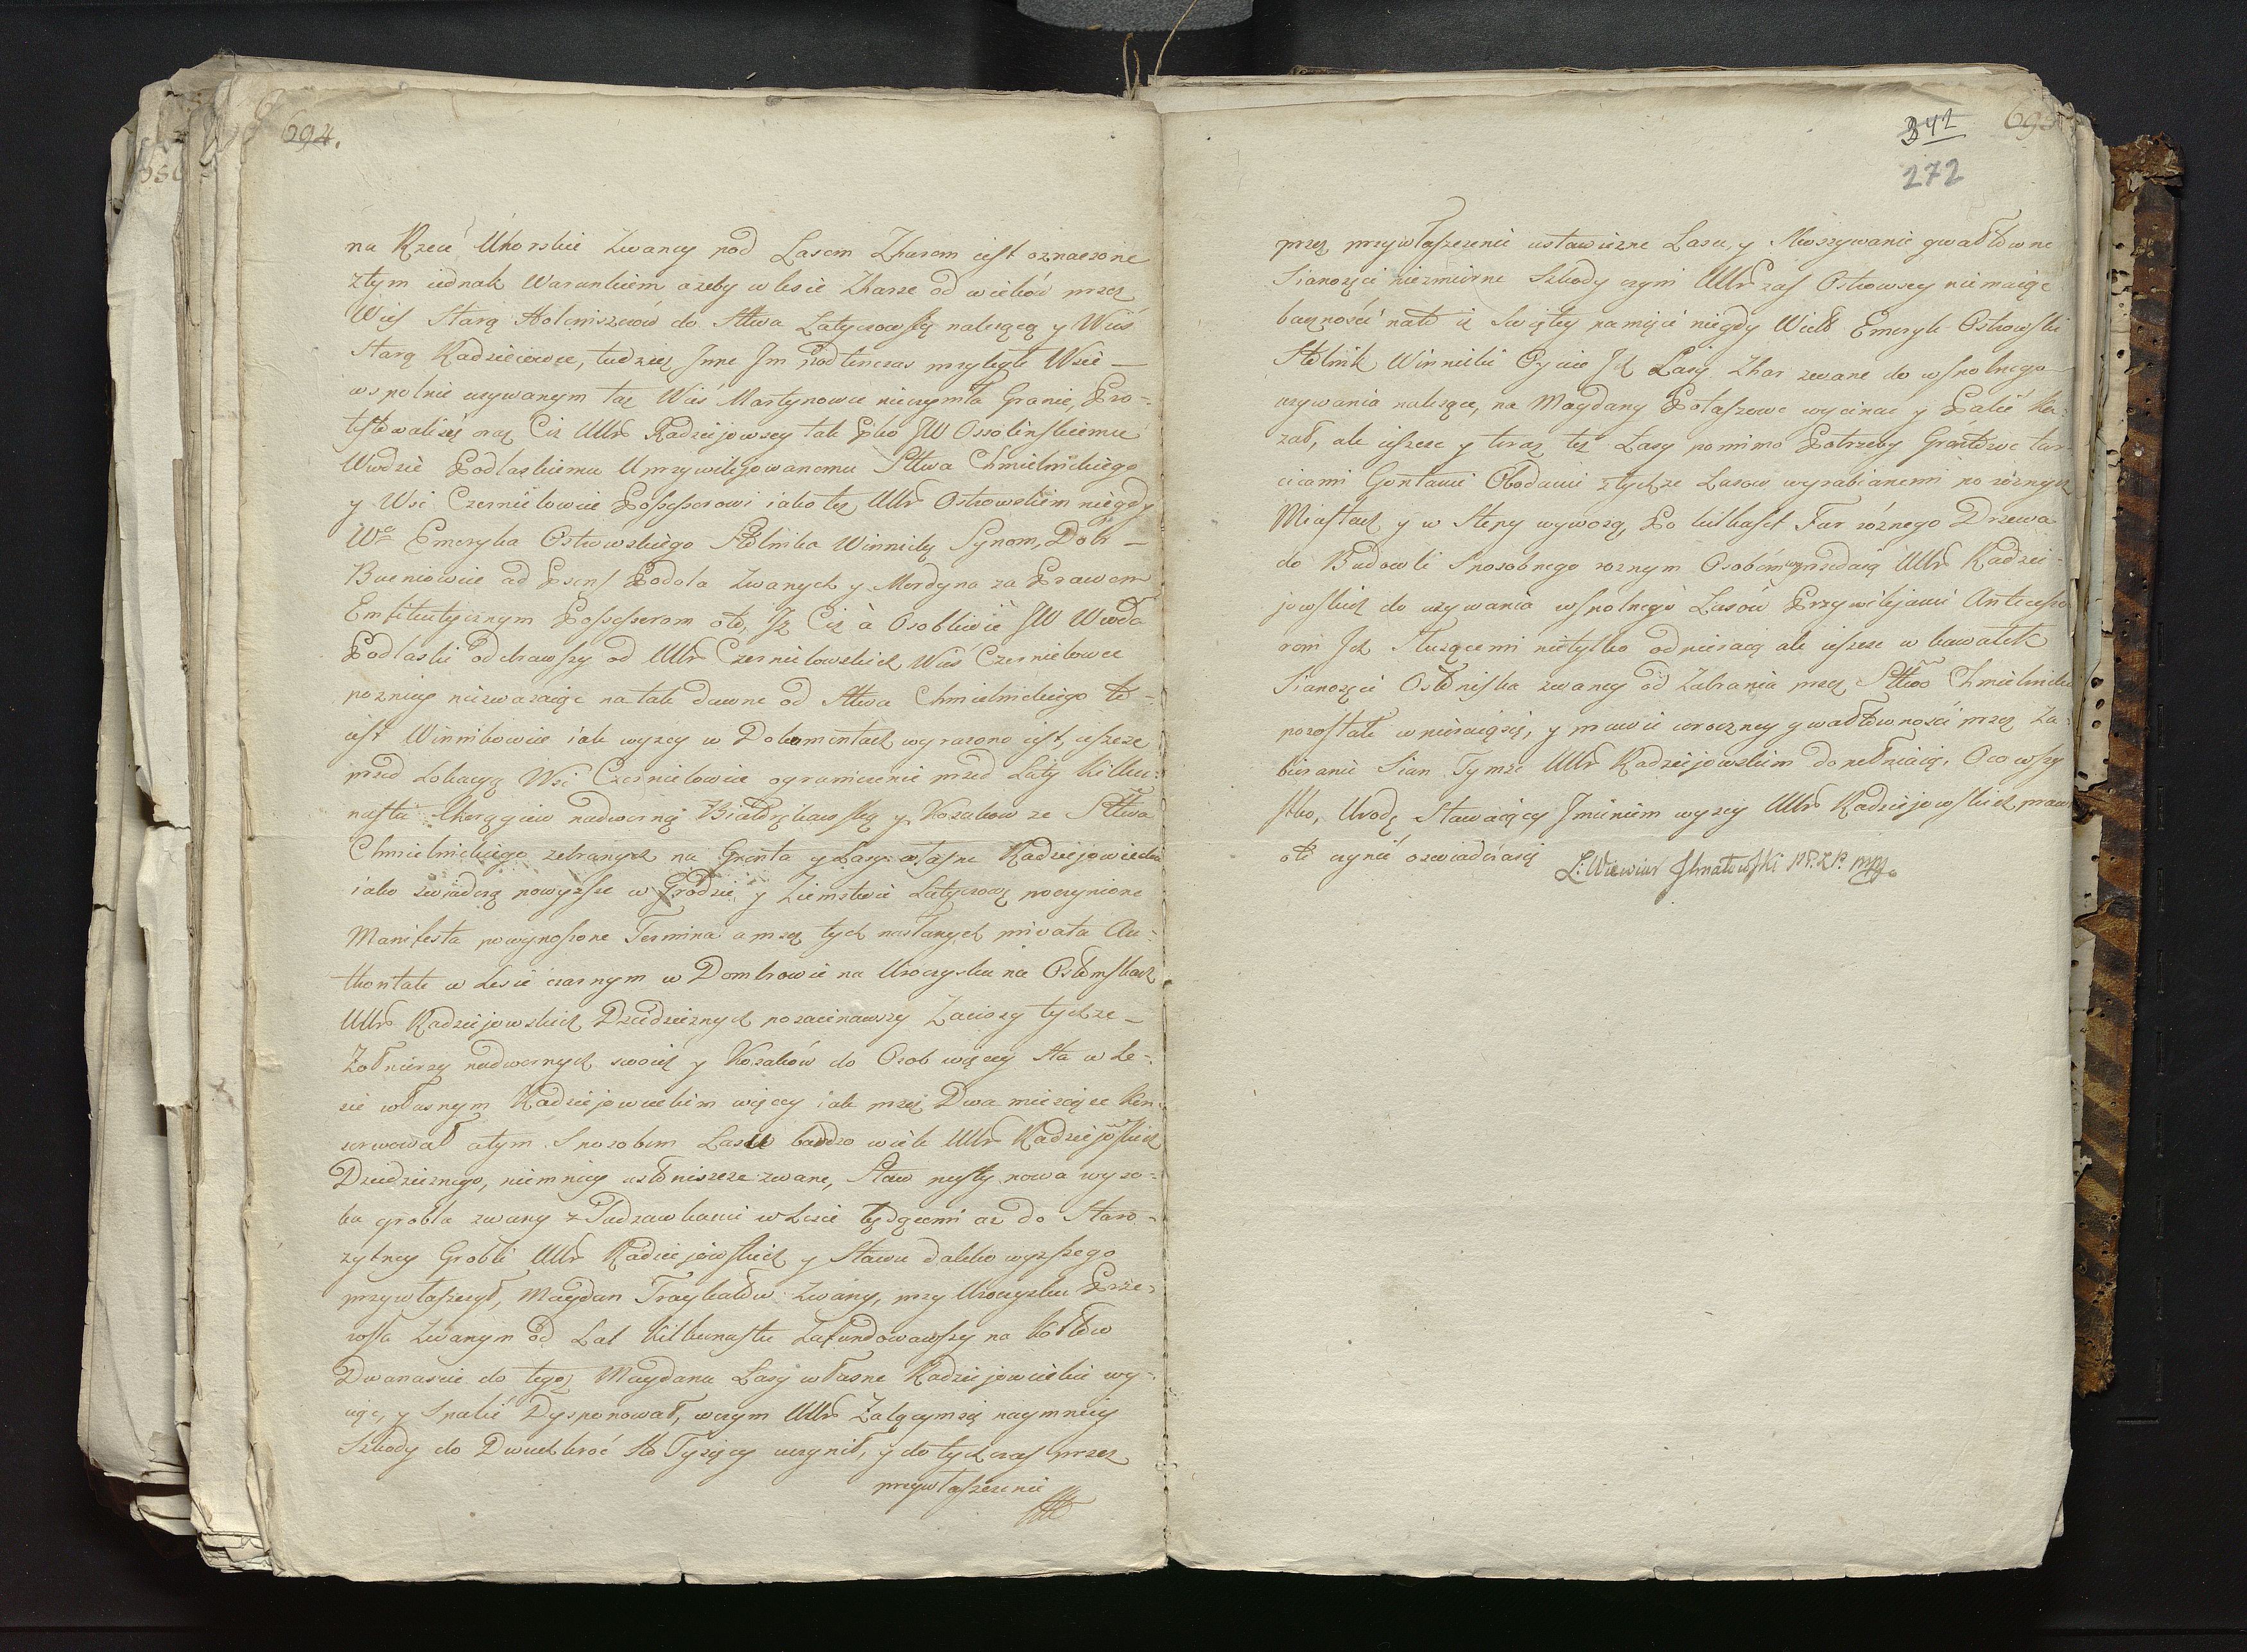 694.
na Rzece Uhorskie Zwaney pod Lasem Zharem iest oznaczone
z tym iednak Warunkiem ażeby w lesie Zharze od wieków przez
Wieś Starą Hołeniszczów do Sttwa Latyczowskg należącą y Wieś
Starą Radzieiowce, tudzież Jnne Jm podtenczas przyległe Wsie –
wspolnie używanym taż Wieś Martynowce nieczyniła Granic, Pro-
testowali się oraz Ciż UUr Radziejowscy tak Pko JW Ossolinskiemu
Wwdzie Podlaskiemu Uprzywilejowanemu Sttwa Chmielnickiego
y Wsi Czernielowiec Possessorowi iako też UUr Ostrowskim niegdy
Wo Emeryka Ostrowskiego Stolnika Winnickg Synom, Dobr –
Bueniowiec ad Psens Podola Zwanych y Merdyna za Prawem
Emfiteutycznym Possessorom oto, Jż Ciż à Osobliwie JW Wwda
Podlaski odebrawszy od UUr Czernielowskich Wieś Czernielowce
pozniey niezważaiąc na tak dawne od Sttwa Chmielnickiego to-
iest Winnikowiec iak wyżey w Dokumentach wyrażono iest, ieszcze
przed Lokacyą Wsi Czernielowiec ograniczenie przed Laty Kilku-
nastu Chorągiew nadworną Białożąkowską y Kozakow ze Sttwa
Chmielnickiego zebranych na Grunta y Lasy własne Radziejowieckie
iako świadczą powyższe w Grodzie y Ziemstwie Latyczowg poczynione
Manifesta powynoszone Termina a przez tych nasłanych privata Au-
thoritate w Lesie czarnym w Dombrowie na Uroczysku na Ostomskach
UUr Radziejowskich Dziedzicznych pozacinawszy Zaciosy tychże –
Zołnierzy nadwornych swoich y Kozaków do Osob więcey sta w Le-
sie własnym Radziejowieckim więcey iak przez Dwa miesiące Kon-
serwował a tym Sposobem Lasu bardzo wiele UUr Radziejowskich
Dziedzicznego, niemniey ustoniszcze zwane, Staw pusty nowa wyso-
ka grobla zwany z Sadzawkami w Lesie będącemi aż do Staro-
zytney Grobli UUr Radziejowskich y Stawu daleko wyższego
przywłaszczył, Maydan Traybałow Zwany, przy Uroczysku Prze-
rosła Zwanym od Lat Kilkunastu Zafundowawszy na Kotłow
Dwanascie do tegoż Maydanu Lasy własne Radziejowieckie wy-
ciąć, y Spalić Dysponował, wczym UUr Zalącymsię naymniey
Szkody do Dwuchkroć Sto Tysięcy uczynił, y dotychczas przez
przywłaszczenie
342 695
272
przez przywłaszczenie ustawiczne Lasu, y skoszywanie gwałtowne
Sianożęci niezmierne Szkody czyni UUr zaś Ostrowscy niemaiąc
bacznosci nato iż Swiętey pamięci niegdy Wielo Emeryk Ostrowski
Stolnik Winnicki Oyciec Jch Lasy Zhar zwane do wspolnego
używania należące, na Maydany Potaszowe wycinać y Palić Ka-
zał, ale ieszcze y teraz też Lasy pomimo Potrzeby Gruntowe tar-
cicami Gontami Obodami z tychże Lasow wyrabianemi po różnych
Miastach y w Stepy wywożą, Po kilkaset Fur różnego Drzewa
do Budowli Sposobnego roznym Osobom wyprzedaią UUr Radzie-
jowskich do używania wspolnego Lasów Przywilejami Antecesso-
rom Jch Służącemi nietylko odpieraią ale ieszcze w kawałek
Sianożęci Ostoniska zwaney od Zabrania przez Sttwo Chmielnickie
pozostałe wpieraiąsię, y prawie coroczney gwałtowności przez Za-
bieranie Sian Tymże UUr Radziejowskim dopełniaią. Oco wszy
stko, Urodz Stawaiący Jmieniem wyżey UUr Radziejowskich praw
oto czynić oswiadczasię L: Wiewiur Jłmatowski PP.Z P. mpp.